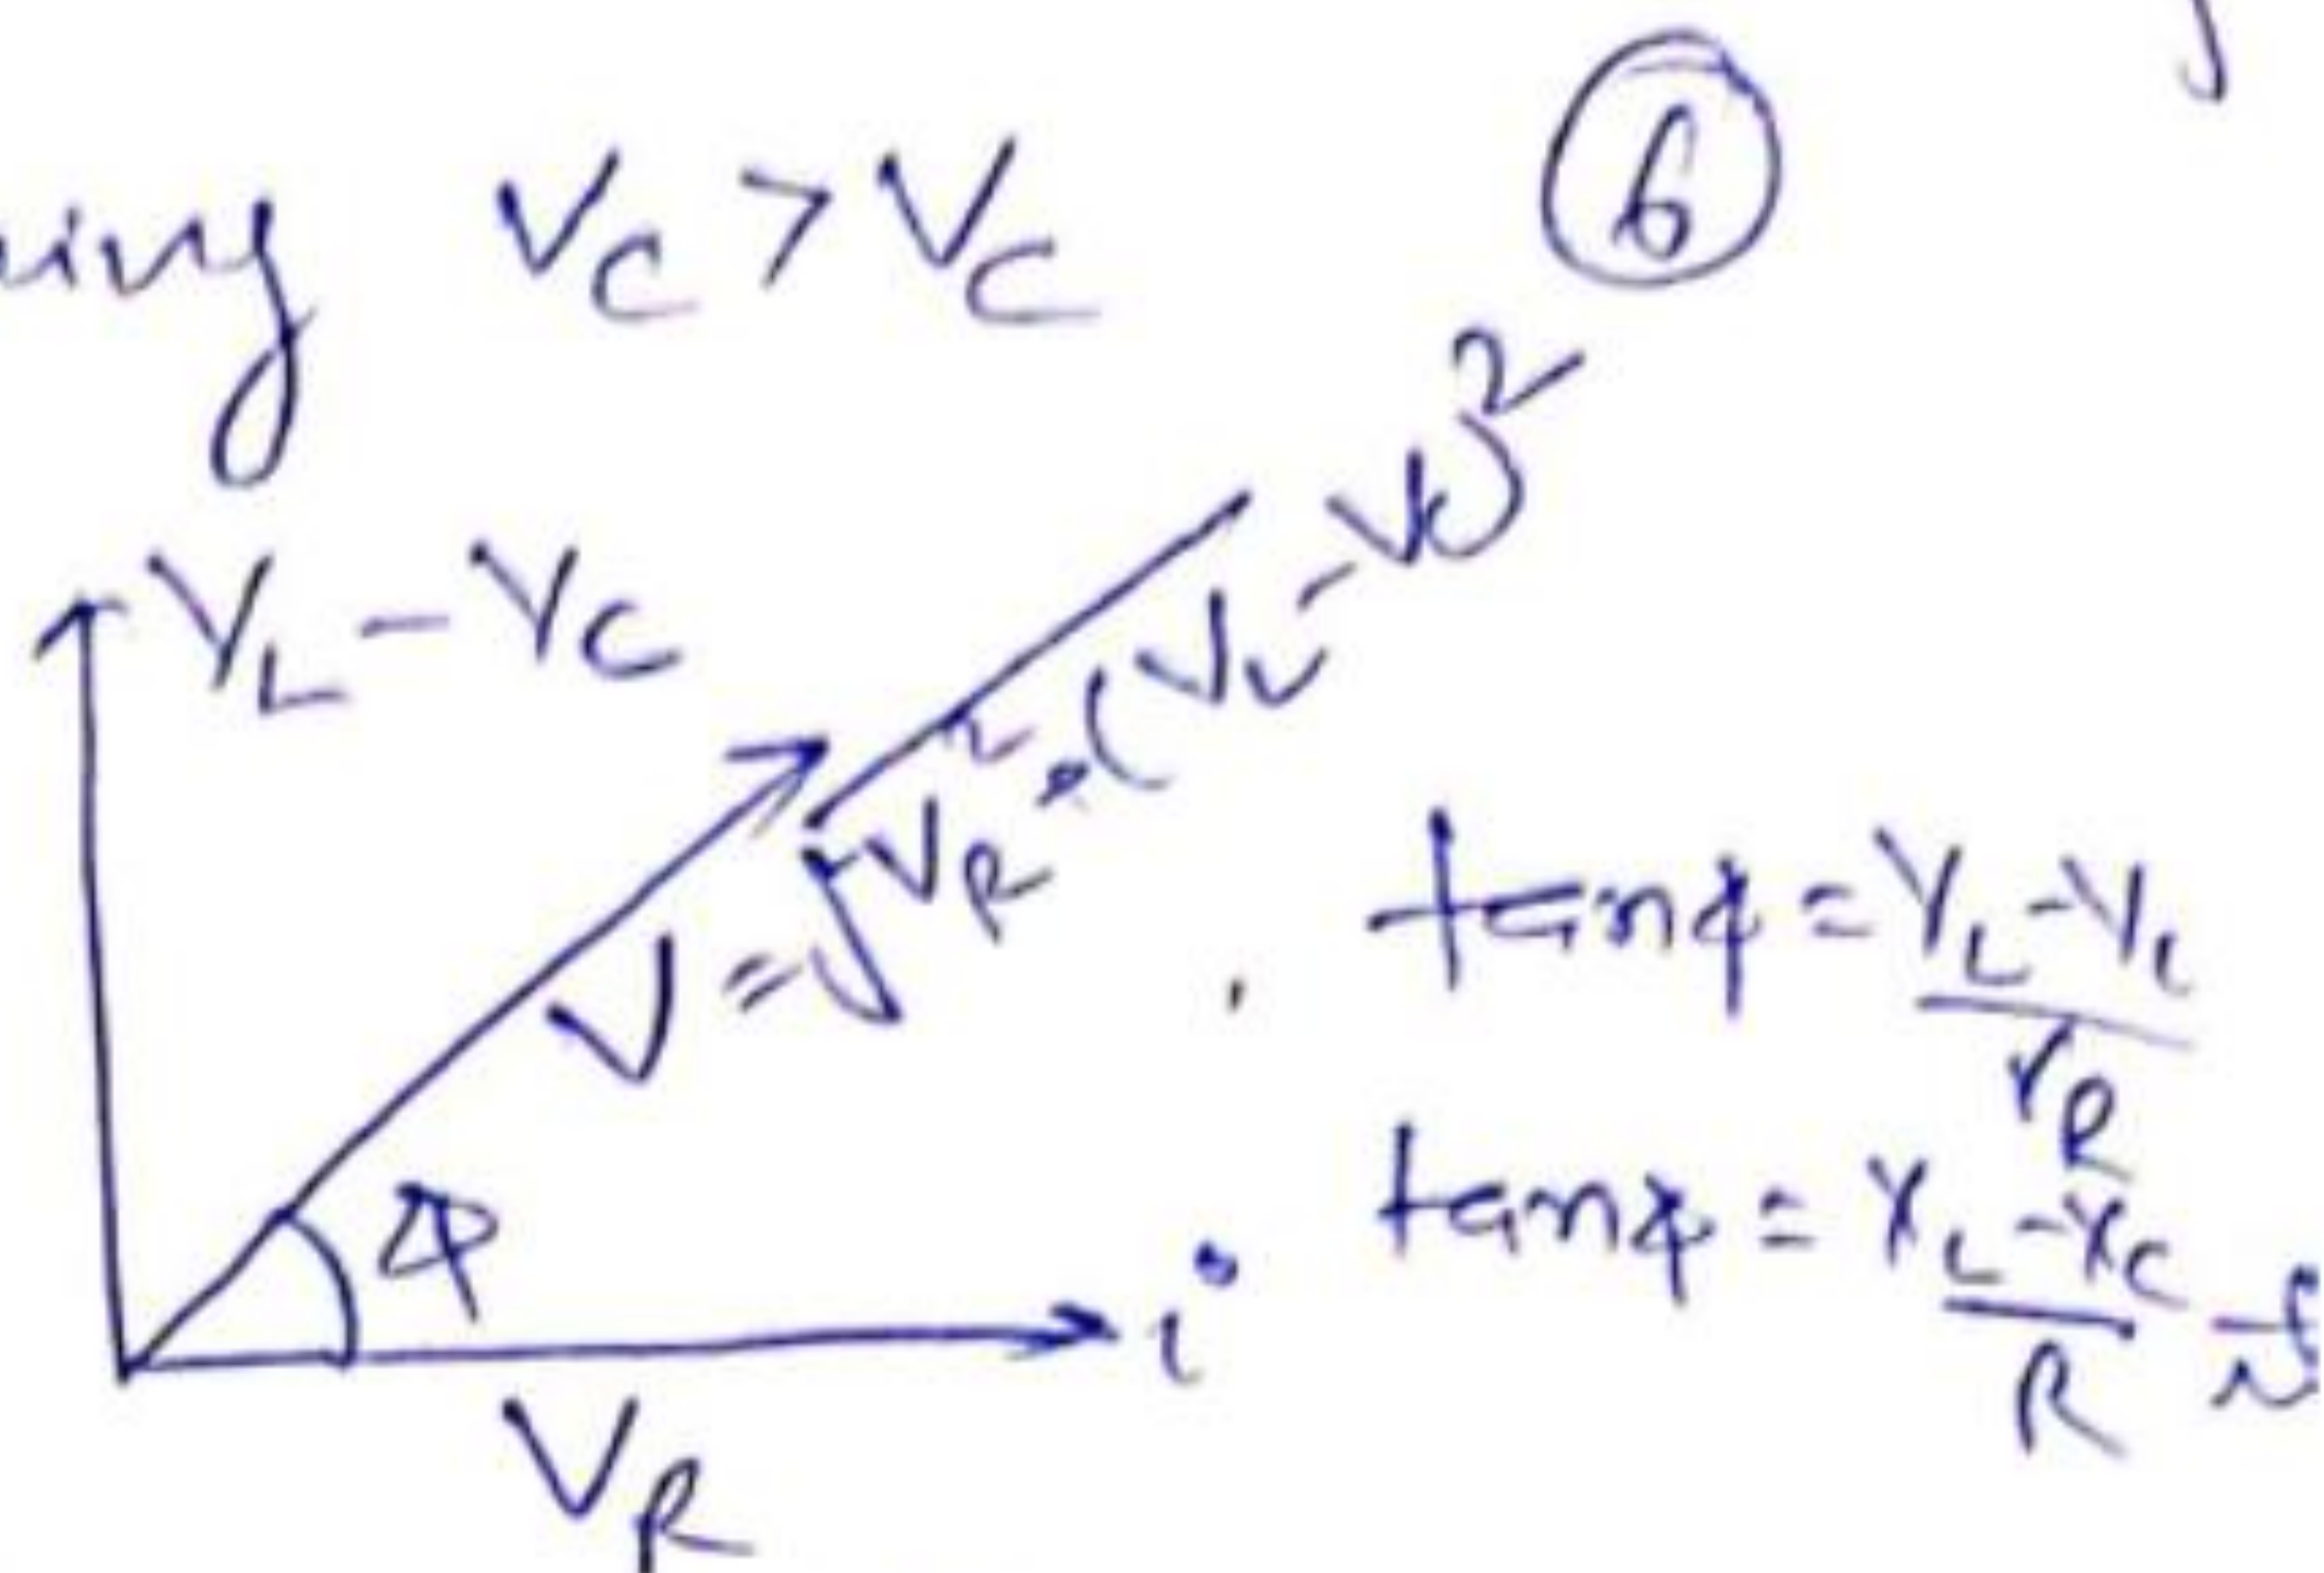 V_C > V_C
6
V_L - V_C
V = √V_R² + (V_L - V_C)²
tanφ = V_L - V_L / V_R
φ
tanφ = X_L - X_C / R
i
V_R